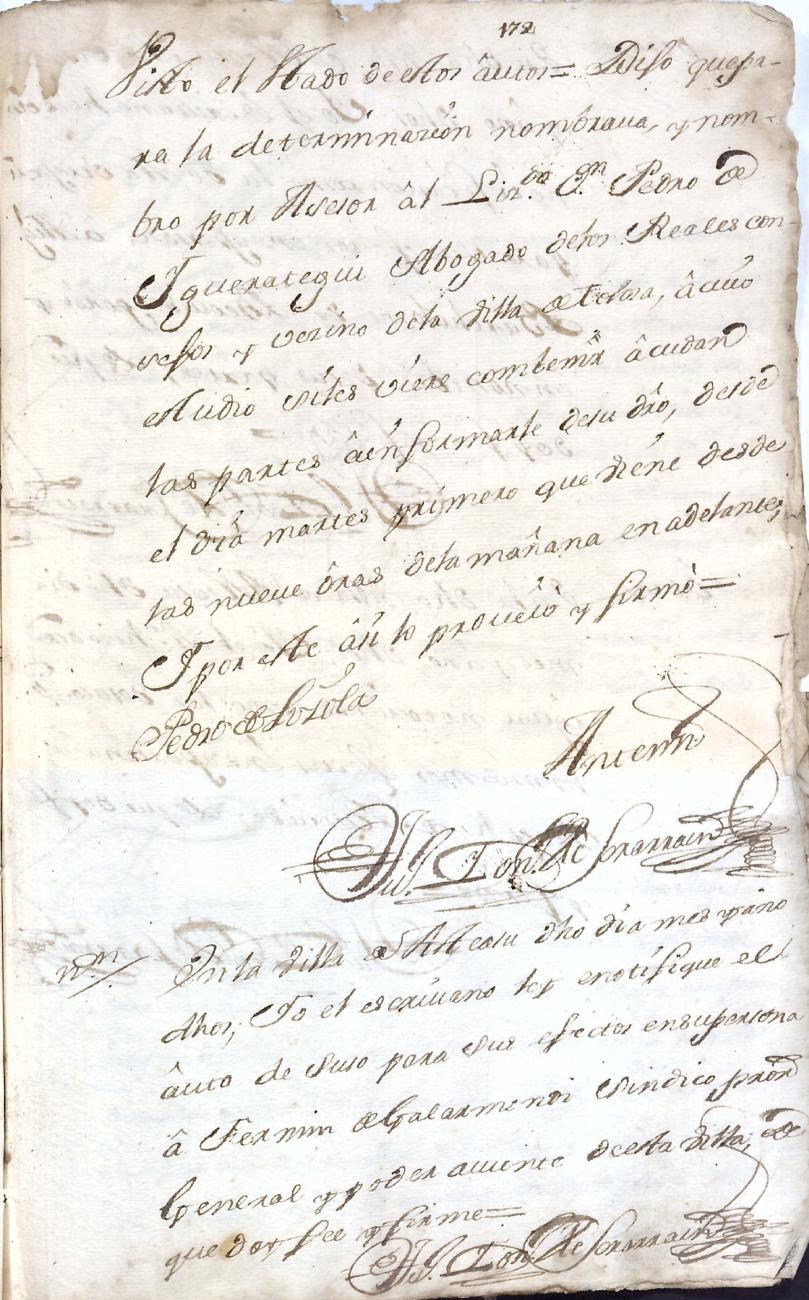 172
Visto el estado de estos âutos= Dijo que pa-
ra la determinazión nombraua, y nom-
bro por Asesor âl Lizdo. Dn. Pedro de
Yguerategui Abogado delos Reales con-
sejos y vezino dela Villa de Tolosa, âcuio
estudio siles viere combenir âcudan
las partes âeinformarle desu dro, desde
el día martes primero que viene desde
las nueve ôras dela mañana en adelante;
Y por este âsi lo proveiô y firmô=
Pedro de Loyola
Antemi
de Sorarrain
nn / Enla Villa de Asteasu dho dia mes y año
dhos; Yo el escriuano ley enotifique el
âuto de suso para sus efectos ensupersona
â Fermin de Galarmendi sindico pror
General y poder auiente deesta Villa, de
que doy fee y firme=
de Sorarrain